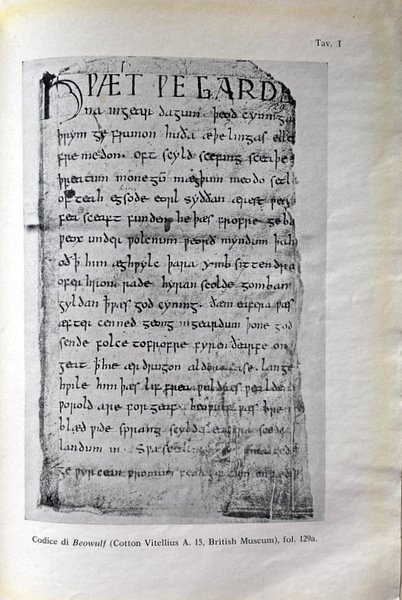 Tav. I
HǷÆT ǷE GARDE
na ingear dagum. þeod cyninga
þrym ge frunon huða æþelingas elle
fre medon. oft scyld scefing sceaþe
þreatum monegū mægþum meodo setla
of teah egsode eorl syððan ærest ƿear
fea sceaft funden he þæs frofre geba
ƿeox under ƿolcnum ƿeorð myndum þah
oð ꝥ him æghƿylc þara ymb sittendra
ofer hron rade hyran scolde gomban
gyldan ꝥ ƿæs god cyning. ðæm eafera ƿæs
æfter cenned geong ingeardum þone god
sende folce tofrofre fyren ðearfe on
geat ꝥ hie ær drugon aldor ase. lange
hƿile him þæs lif frea ƿuldres ƿealde
ƿorold are forgeaf. beoƿulf ƿæs breme
blæd ƿide sprang scyldes eafera scede
landum in. Sƿa sceal uma gode
ge ƿyrcean fromum feoh giftum
Codice di Beowulf (Cotton Vitellius A. 15, British Museum), fol. 129a.